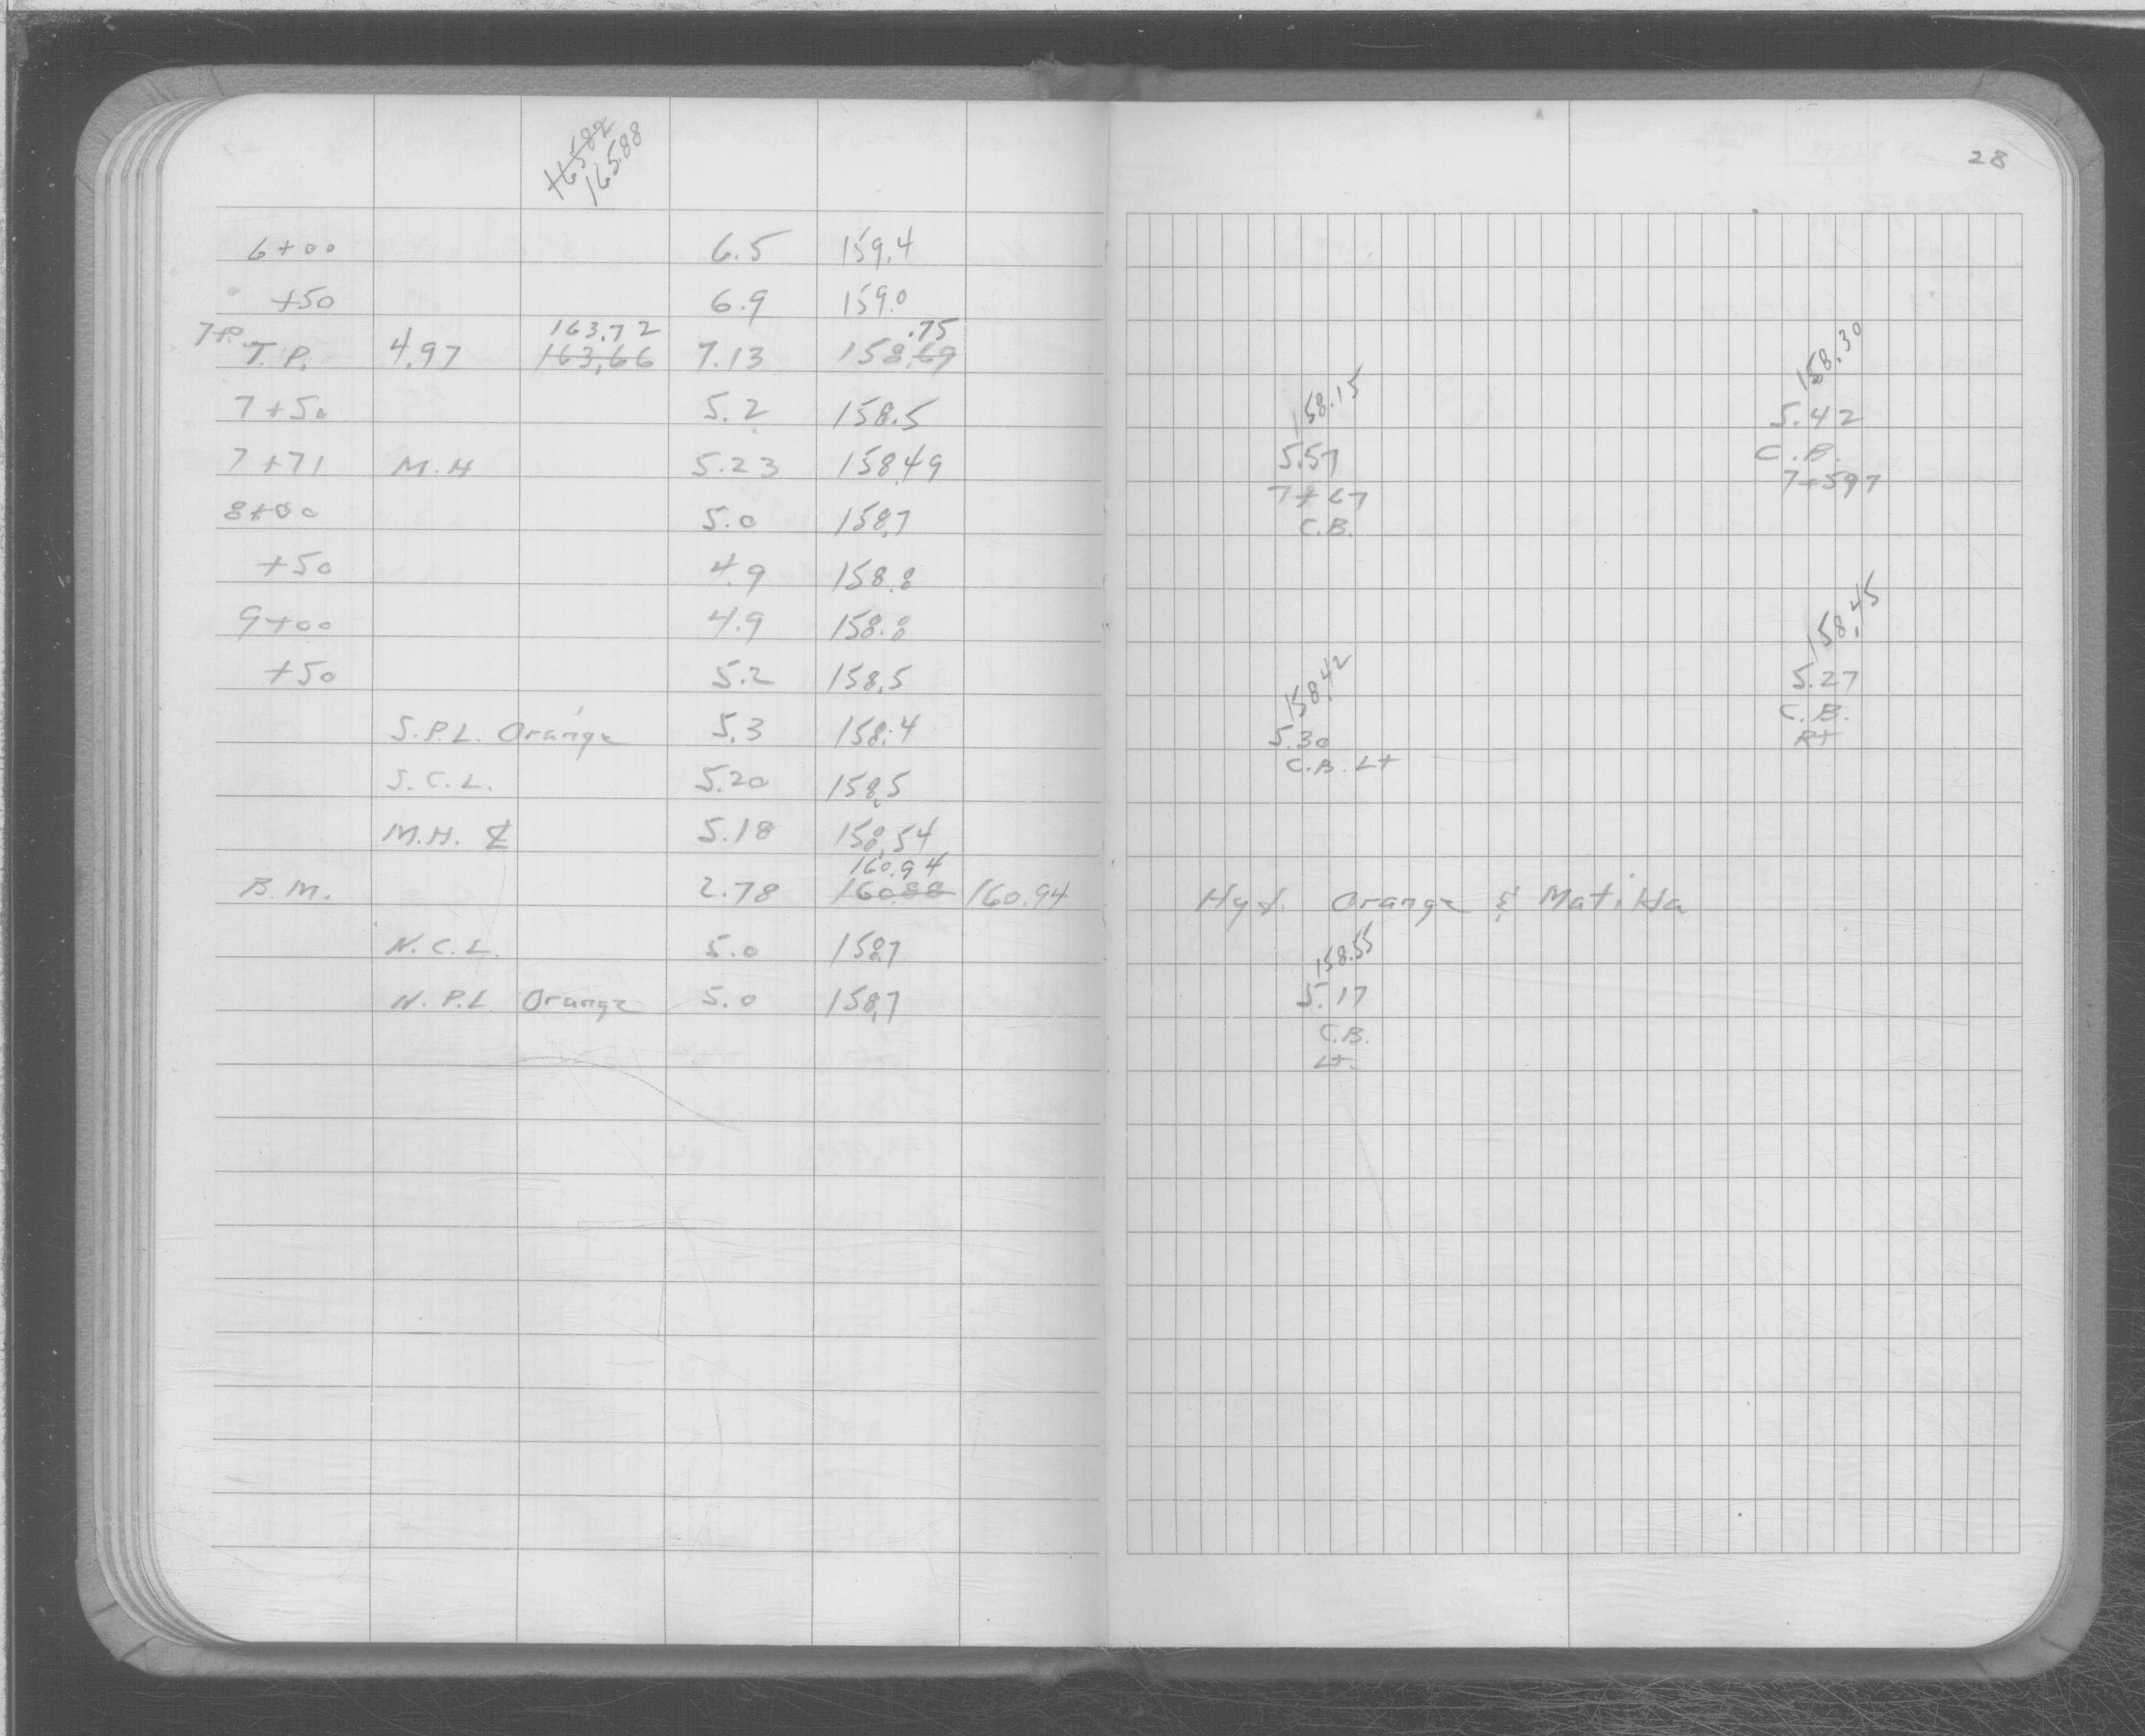 165.82
165.88
6+00 6.5 159.4
+50 6.9 159.0
7+0 163.72 .75
T.P. 4.97 163.66 7.13 158.69
7+50 5.2 158.5
7+71 M.H 5.23 158.49
8+00 5.0 158.7
+50 4.9 158.8
9+00 4.9 158.8
+50 5.2 158.5
S.P.L. Orange 5.3 158.4
S.C.L. 5.20 158.5
M.H. ℄ 5.18 158.54
160.94
B.M. 2.78 160.88 160.94
N.C.L. 5.0 158.7
N.P.L Orange 5.0 158.7
28
158.15
5.57
7+67
C.B.
158.30
5.42
C.B.
7+597
158.42
5.30
C.B. Lt
158.45
5.27
C.B.
Rt
Hyd. Orange & Matilda
158.55
5.17
C.B.
Lt.